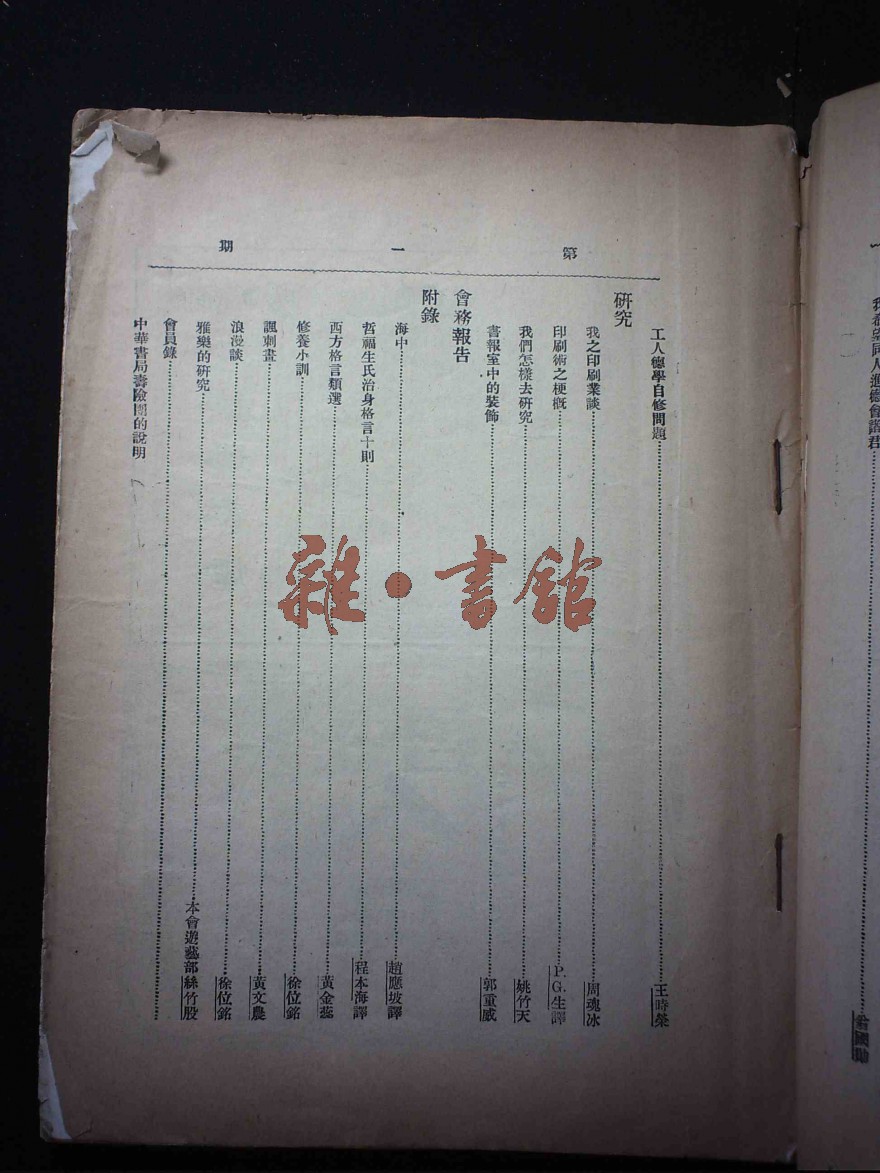 第一期
工人德學自修問題……王時榮
研究
我之印刷業談……周魂冰
印刷術之梗概……P.G.生譯
我們怎樣去研究……姚竹天
書報室中的裝飾……郭重威
會務報告
附錄
海中……趙應坡譯
哲福生氏治身格言十則……程本海譯
西方格言類選……黃金蕊
修養小訓……徐位銘
諷刺畫……黃文農
浪漫談……徐位銘
雅樂的研究……本會遊藝部絲竹股
會員錄……
中華書局壽險團的說明
雜·書館
我希望同人進德會諸君……